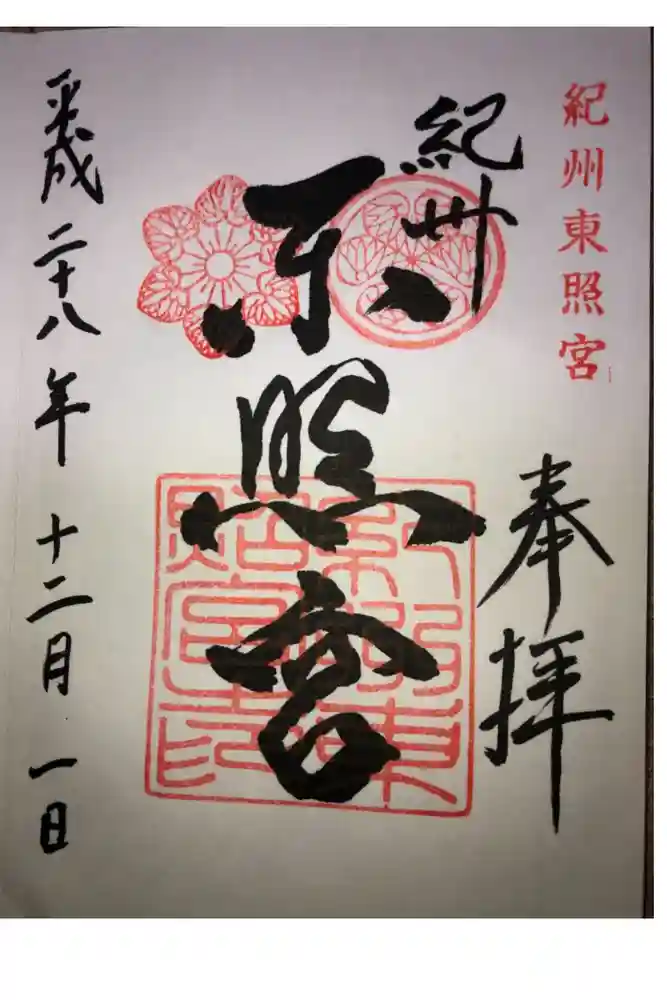 紀州東照宮
奉拝
紀州
東照宮
平成二十八年十二月一日